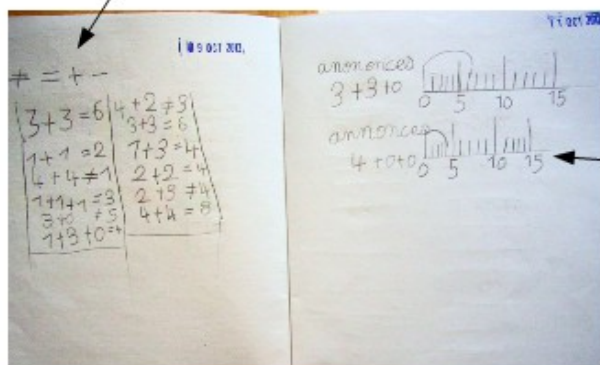 9 OCT 2012
≠ = + -
3+3=6
1+1=2
4+4≠1
1+1+1=3
1+3+0=4
4+2≠3
3+3=6
1+3=4
2+2=4
2+3≠4
4+4=8
OCT
anononces
3+3+0
0 5 10 15
annonces
4+0+0
0 5 10 15